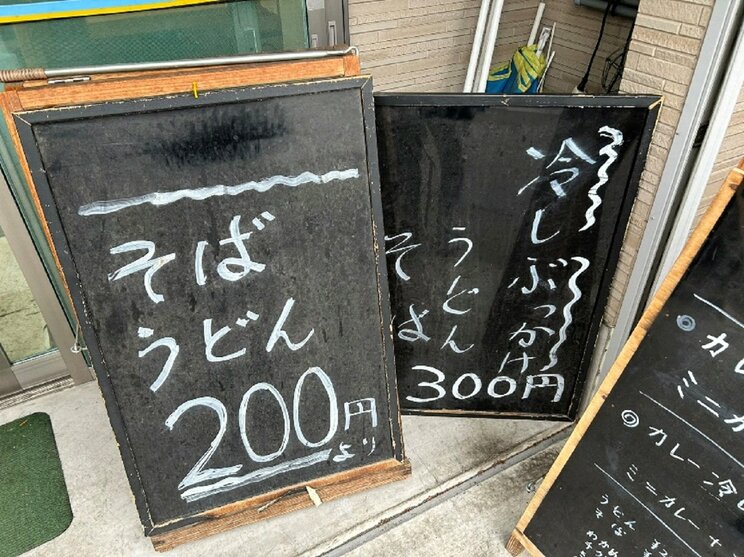 そば
うどん
200円より
冷しぶっかけ
うどん
そば
300円
◎カレ
ミニカ
◎カレー冷
ミニカレー+
うどん
そば
わかめ